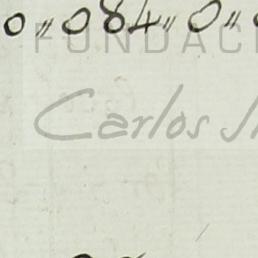 0„084„0„
FUNDACI
Carlos